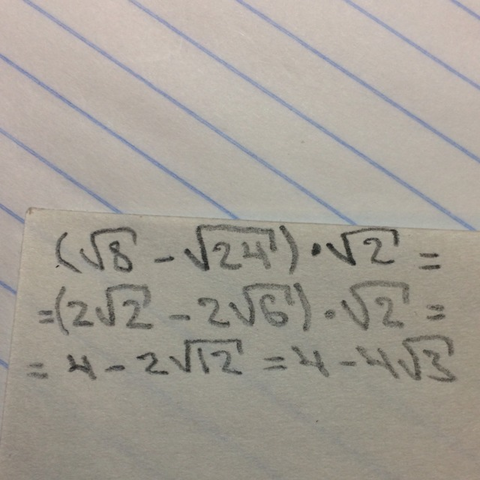 (√8 - √24) · √2 =
= (2√2 - 2√6) · √2 =
= 4 - 2√12 = 4 - 4√3